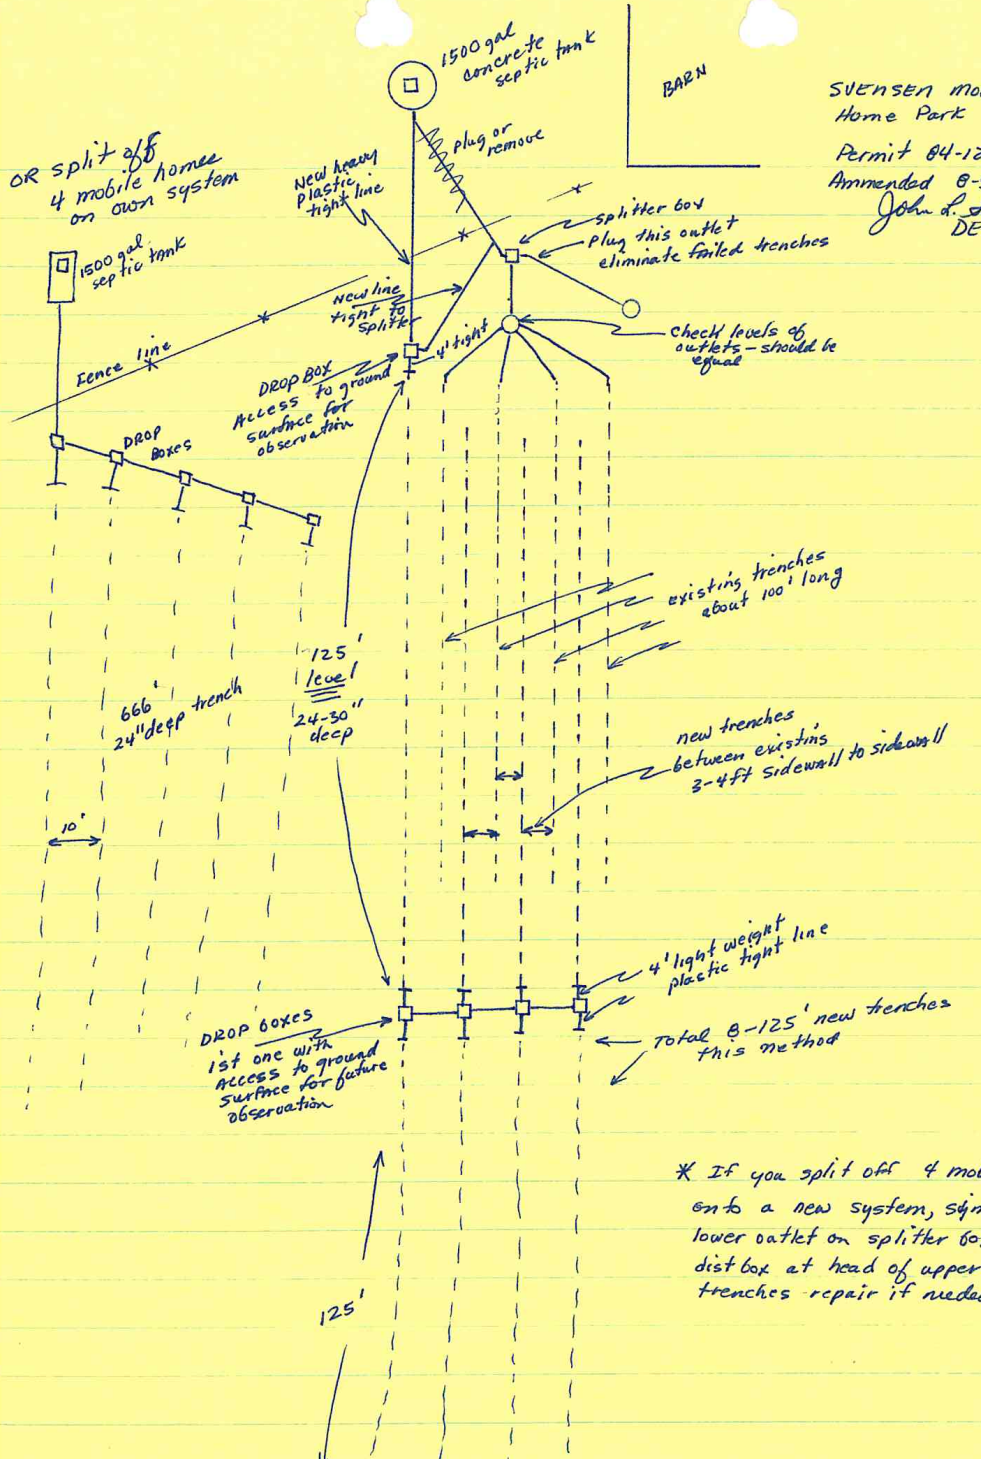 1500 gal
concrete
septic tank
BARN
SVENSEN Mo
Home Park
Permit 84-12
Ammended 8-
John L.
DE
OR split off
4 mobile homes
on own system
New heavy
Plastic
tight line
plug or
remove
1500 gal
septic tank
splitter box
Plug this outlet
eliminate failed trenches
New line
tight to
Splitter
Fence line
4' tight
check levels of
outlets - should be
equal
DROP BOX
Access to ground
surface for
observation
DROP
Boxes
existing trenches
about 100' long
125'
level
24-30"
deep
666'
24" deep trench
10'
new trenches
between existing
3-4ft sidewall to sidewall
4' light weight
plastic tight line
Total 8-125' new trenches
this method
DROP boxes
1st one with
Access to ground
surface for future
observation
125'
* If you split off 4 mo
onto a new system,
lower outlet on splitter bo
dist box at head of upper
trenches - repair if neede